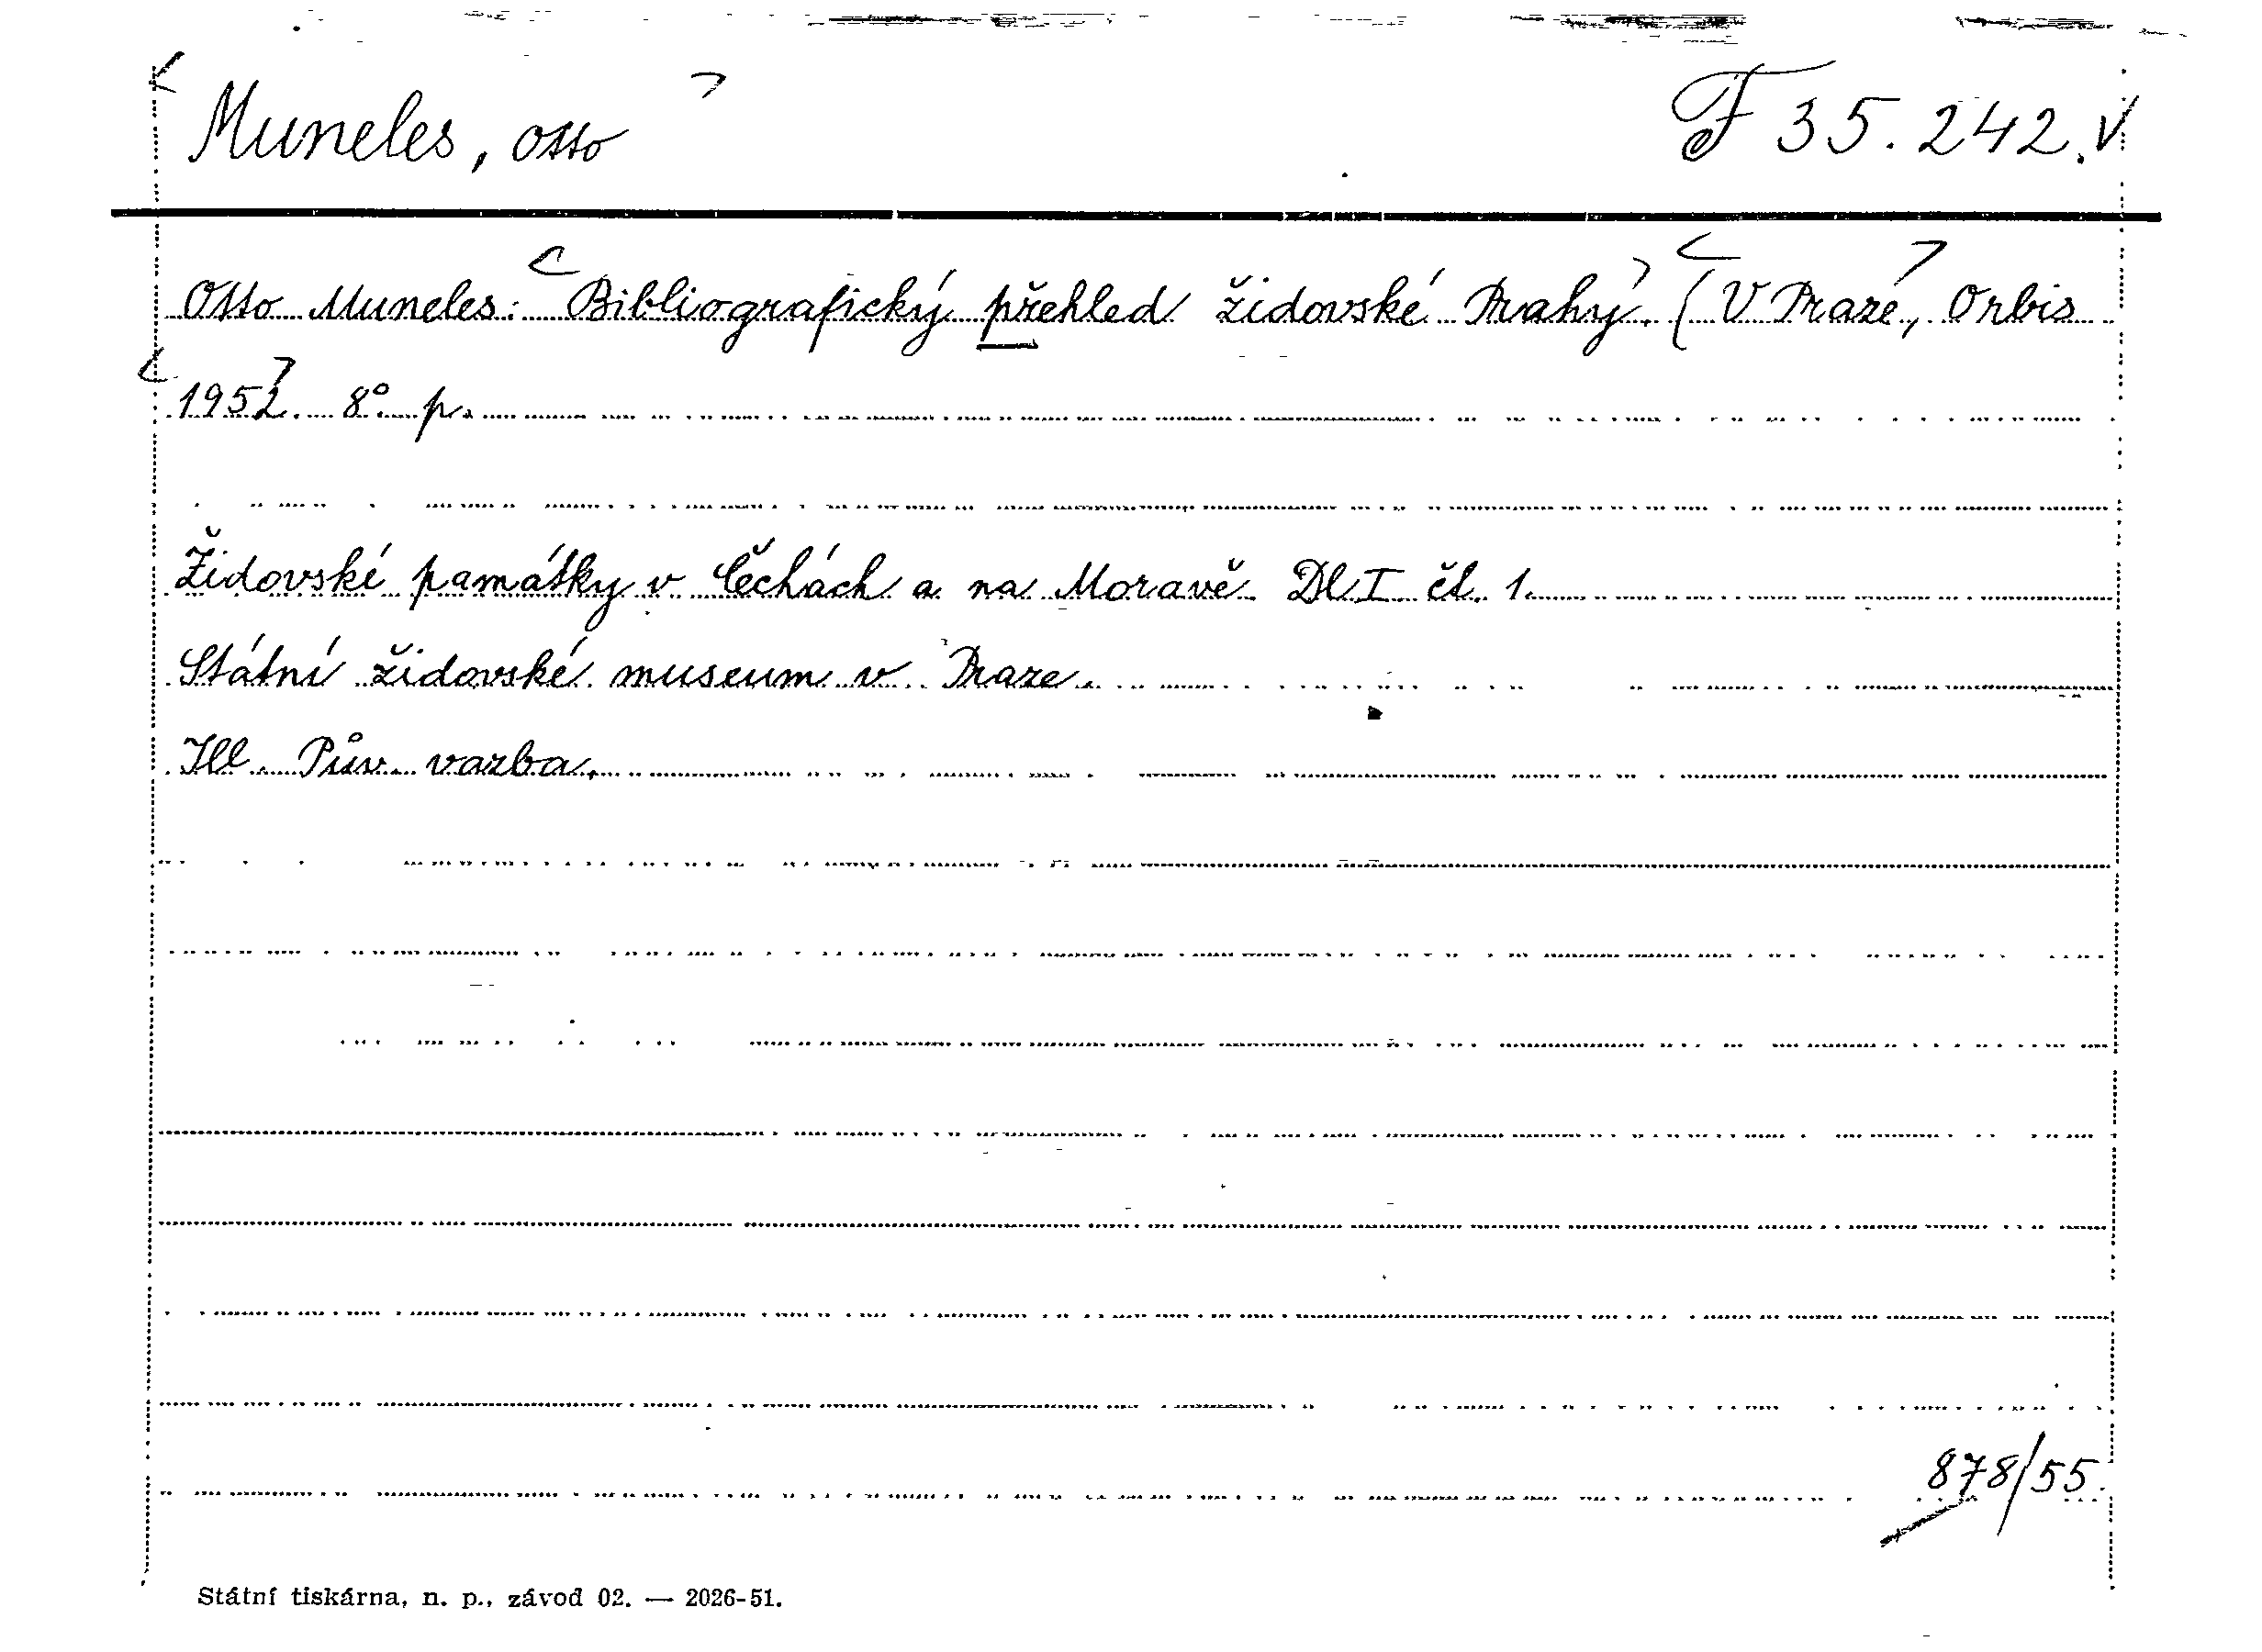 Muneles, Otto
F 35.242.
Otto Muneles: Bibliografický přehled židovské Prahy. (V Praze, Orbis
1952. 8° p.
Židovské památky v Čechách a na Moravě Dl I čl. 1.
Státní židovské museum v Praze.
Ill. Pův. vazba.
878/55.
Státní tiskárna, n. p., závod 02. — 2026-51.